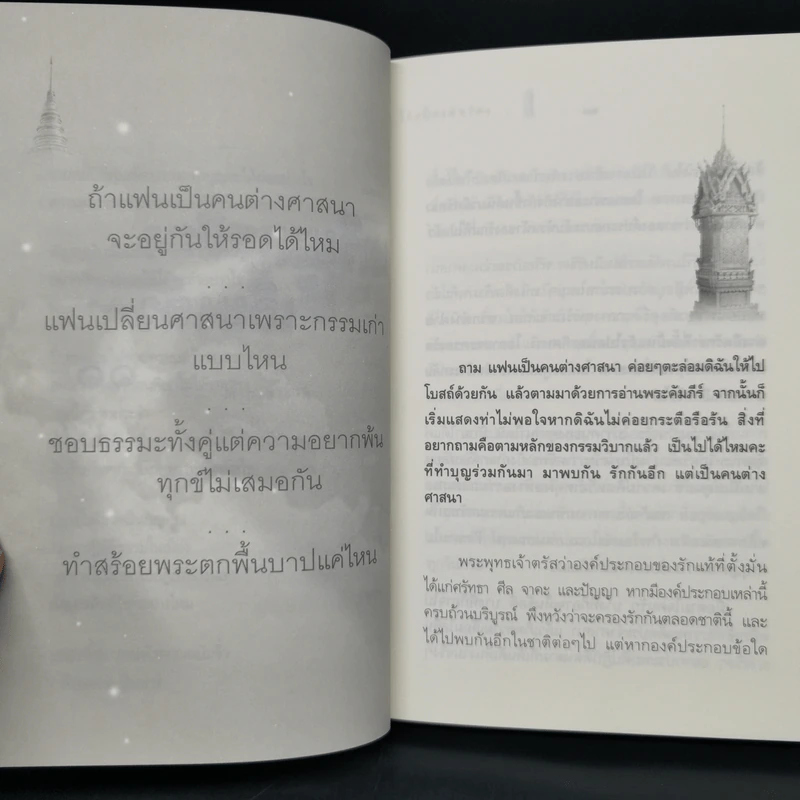 ถ้าแฟนเป็นคนต่างศาสนา
จะอยู่กันให้รอดได้ไหม
. . .
แฟนเปลี่ยนศาสนาเพราะกรรมเก่า
แบบไหน
. . .
ชอบธรรมะทั้งคู่แต่ความอยากพ้น
ทุกข์ไม่เสมอกัน
. . .
ทำสร้อยพระตกพื้นบาปแค่ไหน
ถาม แฟนเป็นคนต่างศาสนา ค่อยๆตะล่อมดิฉันให้ไป
โบสถ์ด้วยกัน แล้วตามมาด้วยการอ่านพระคัมภีร์ จากนั้นก็
เริ่มแสดงท่าไม่พอใจหากดิฉันไม่ค่อยกระตือรือร้น สิ่งที่
อยากถามคือตามหลักของกรรมวิบากแล้ว เป็นไปได้ไหมคะ
ที่ทำบุญร่วมกันมา มาพบกัน รักกันอีก แต่เป็นคนต่าง
ศาสนา
พระพุทธเจ้าตรัสว่าองค์ประกอบของรักแท้ที่ตั้งมั่น
ได้แก่ศรัทธา ศีล จาคะ และปัญญา หากมีองค์ประกอบเหล่านี้
ครบถ้วนบริบูรณ์ พึงหวังว่าจะครองรักกันตลอดชาตินี้ และ
ได้ไปพบกันอีกในชาติต่อๆไป แต่หากองค์ประกอบข้อใด